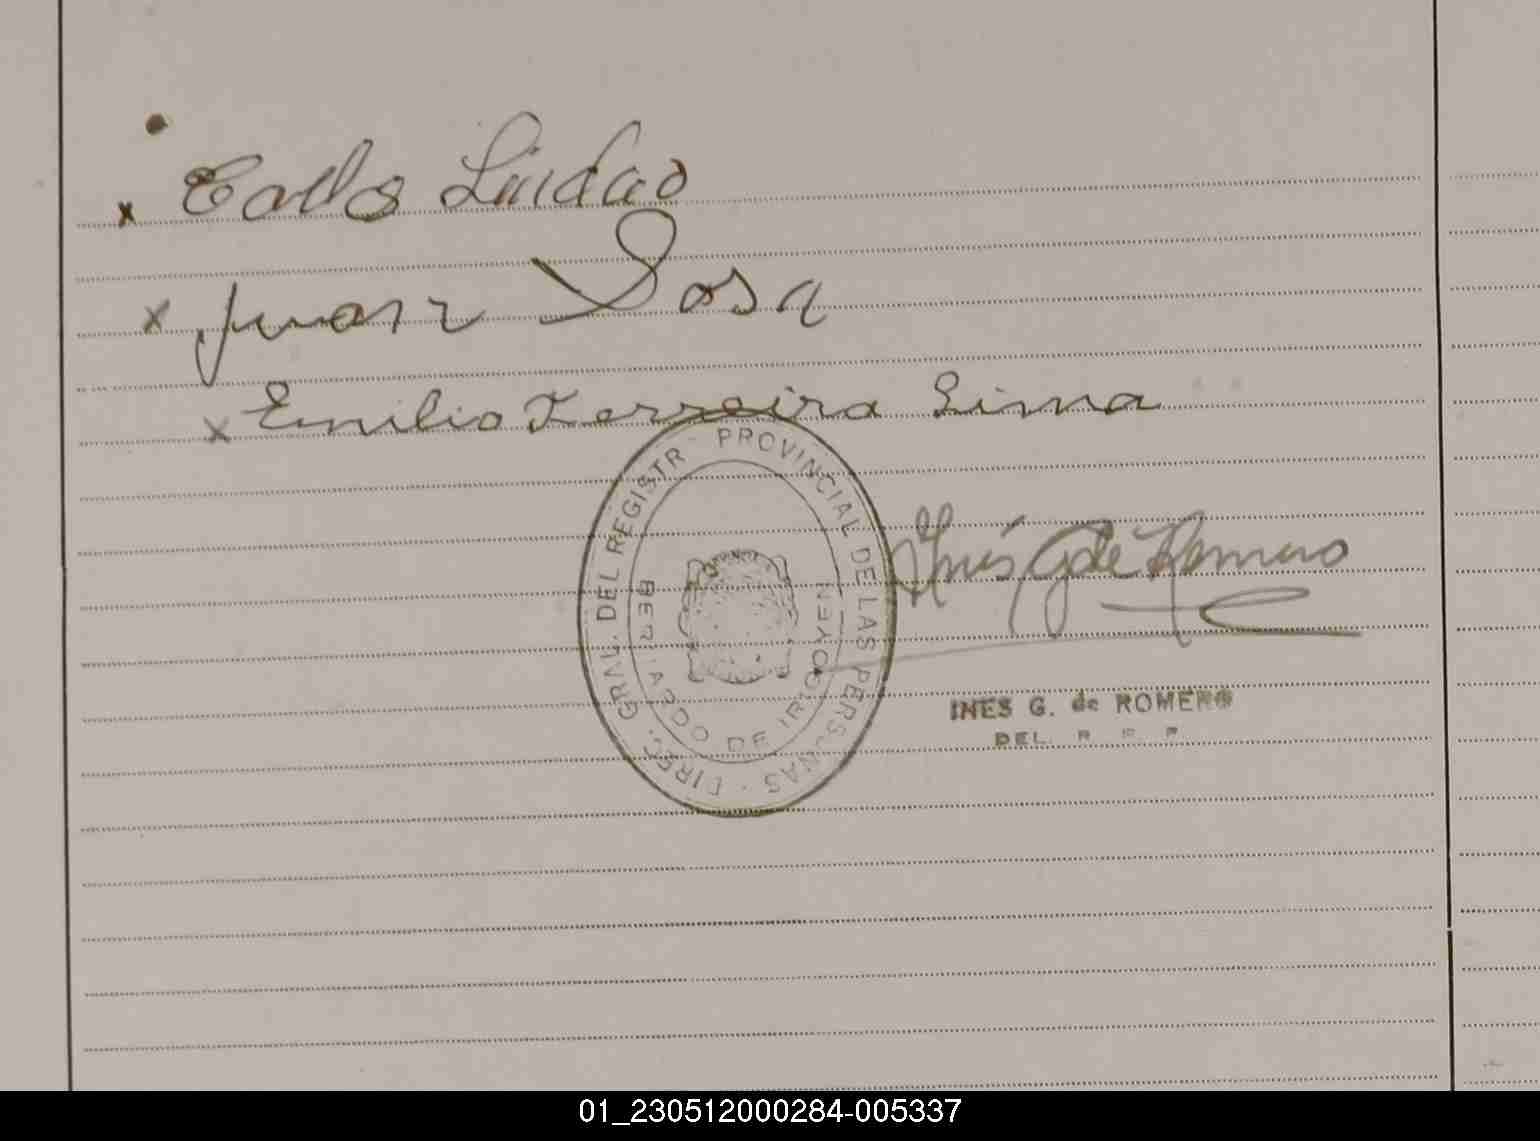 x Carlos
x Juan Sosa
x Emilio Ferreira Lima
DIREC. GRAL. DEL REGISTR PROVINCIAL DE LAS PERSONAS
BERNARDO DE IRIGOYEN
Inés G de Romero
INES G. de ROMERO
DEL. R P P
01_230512000284-005337